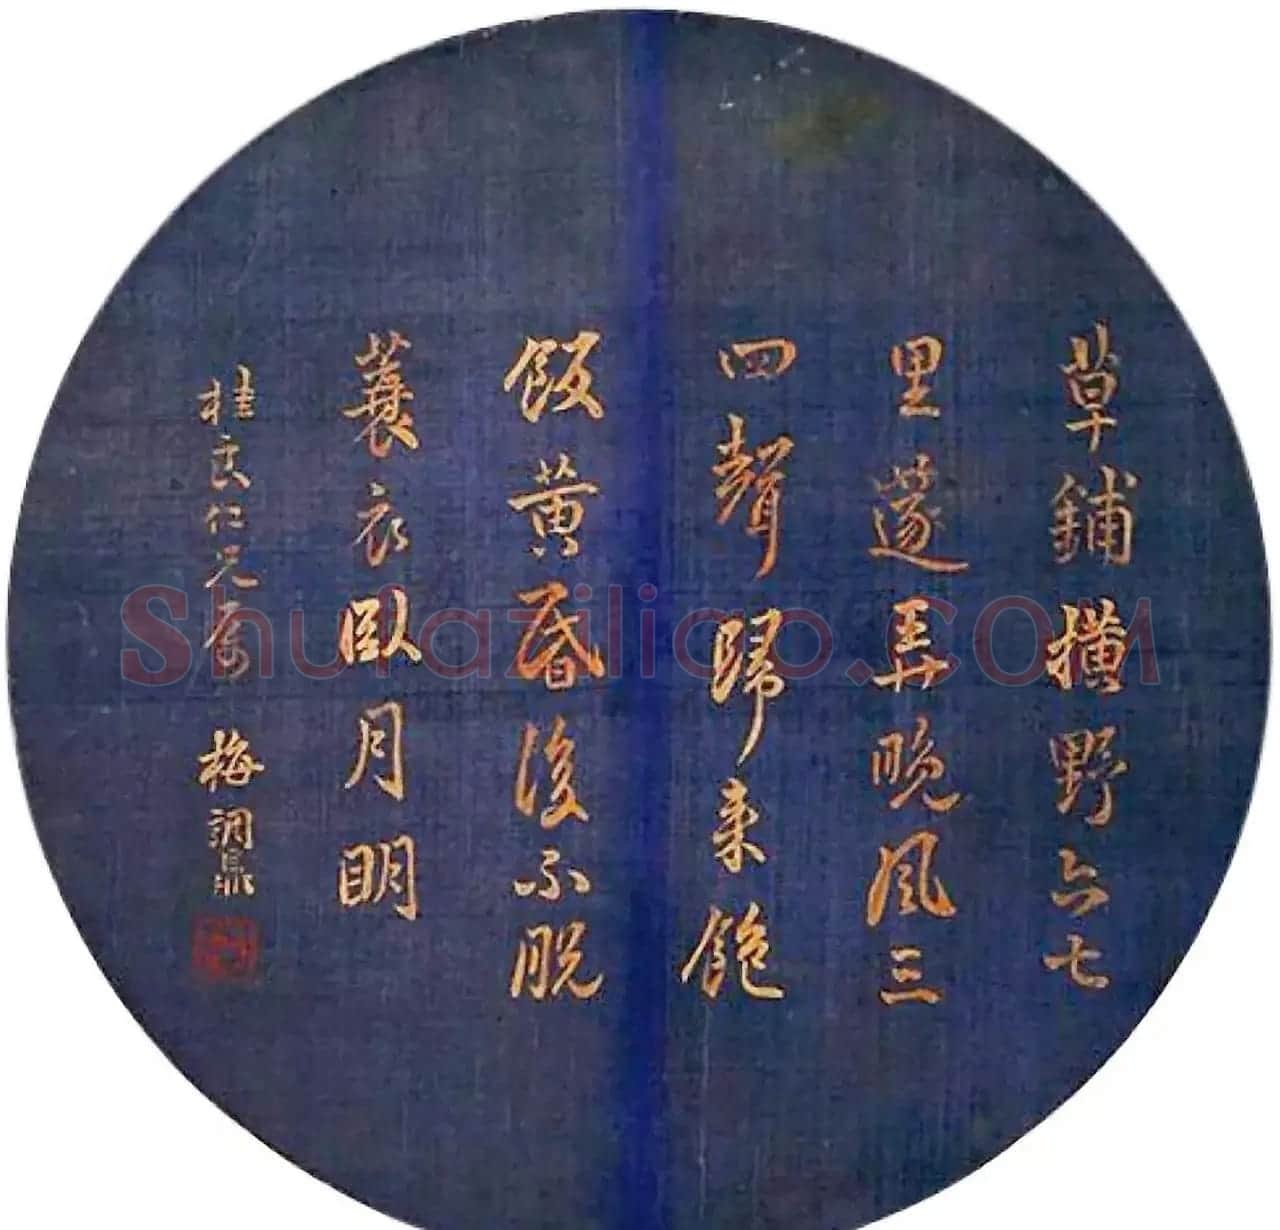 草鋪橫野六七
里篴弄晚風三
四聲歸來飽
飯黃昏後不脫
蓑衣臥月明
桂良仁兄屬 梅調鼎
Shufaziliao.COM